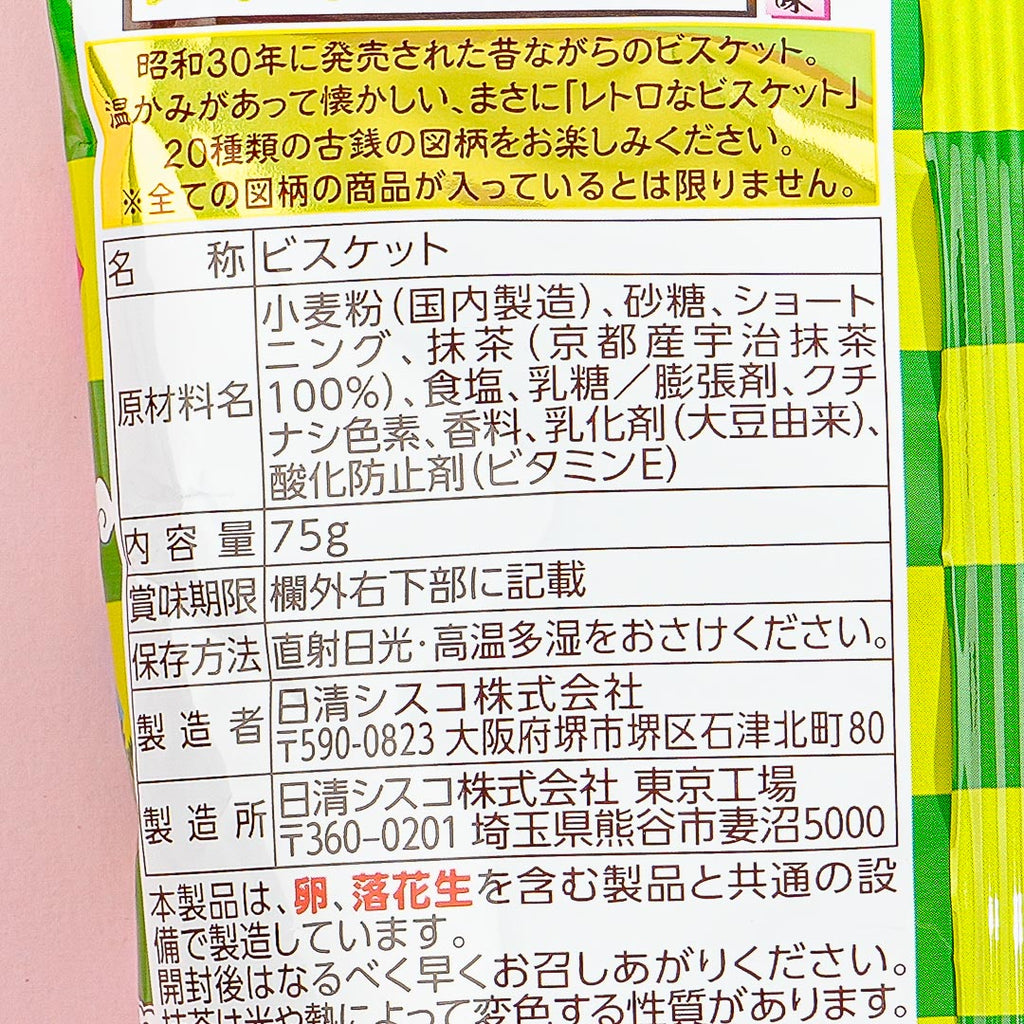 味
昭和30年に発売された昔ながらのビスケット。
温かみがあって懐かしい、まさに「レトロなビスケット」
20種類の古銭の図柄をお楽しみください。
※全ての図柄の商品が入っているとは限りません。
名称 ビスケット
原材料名 小麦粉(国内製造)、砂糖、ショート
ニング、抹茶(京都産宇治抹茶
100%)、食塩、乳糖／膨張剤、クチ
ナシ色素、香料、乳化剤(大豆由来)、
酸化防止剤(ビタミンE)
内容量 75g
賞味期限 欄外右下部に記載
保存方法 直射日光・高温多湿をおさけください。
製造者 日清シスコ株式会社
〒590-0823 大阪府堺市堺区石津北町80
製造所 日清シスコ株式会社 東京工場
〒360-0201 埼玉県熊谷市妻沼5000
本製品は、卵、落花生を含む製品と共通の設
備で製造しています。
開封後はなるべく早くお召しあがりください。
抹茶は光や熱によって変色する性質があります。